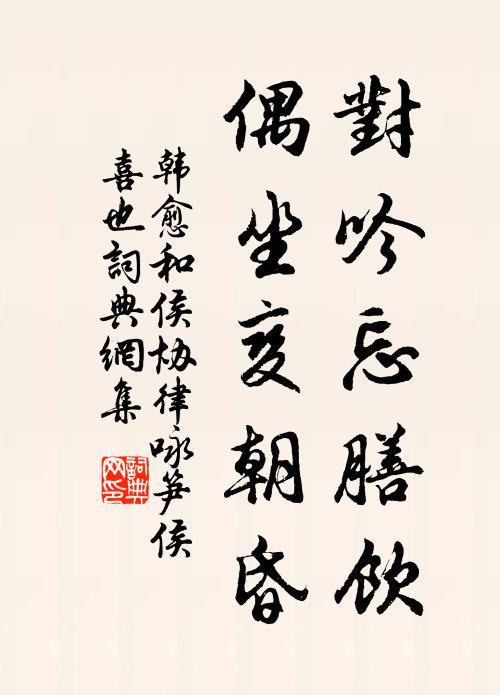 對吟忘膳飲
偶坐变朝昏
韩愈和侯协律咏笋侯
喜也詞典網集
詞典
网印